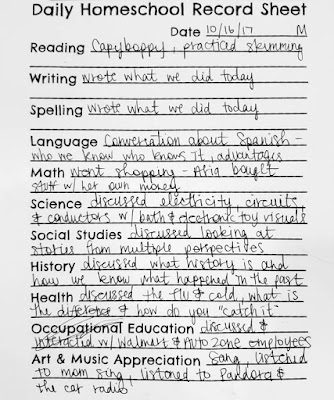 Daily Homeschool Record Sheet
Date 10/16/17 M
Reading Capyboppy, practiced skimming
Writing wrote what we did today
Spelling wrote what we did today
Language Conversation about Spanish -
who we know who knows it, advantages
Math Went shopping - Aria bought
stuff w/ her own money
Science discussed electricity, circuits
& conductors w/ both & electronic toy visuals
Social Studies discussed looking at
stories from multiple perspectives
History discussed what history is and
how we know what happened in the past
Health discussed the flu & cold, what is
the difference & how do you "catch it"
Occupational Education discussed &
interacted w/ Walmart & AutoZone employees
Art & Music Appreciation Sang, listened
to mom sing, listened to Pandora &
the car radio